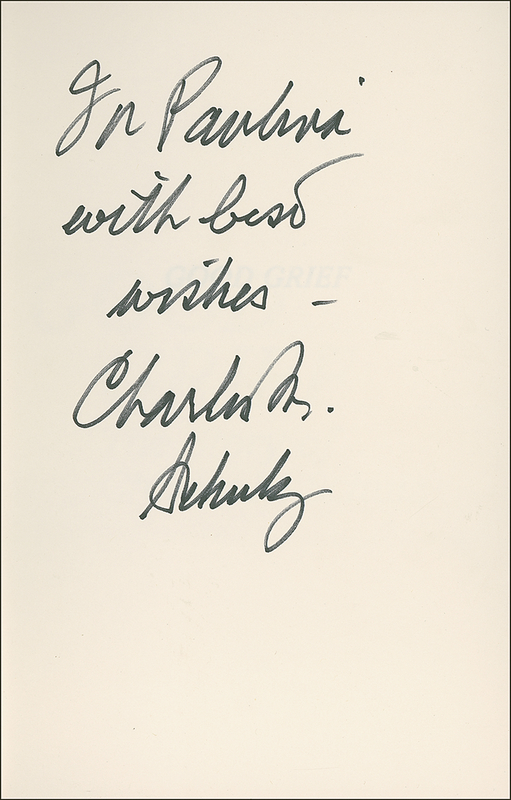 For Paulina
with best
wishes –
Charles M.
Schulz
GOOD GRIEF